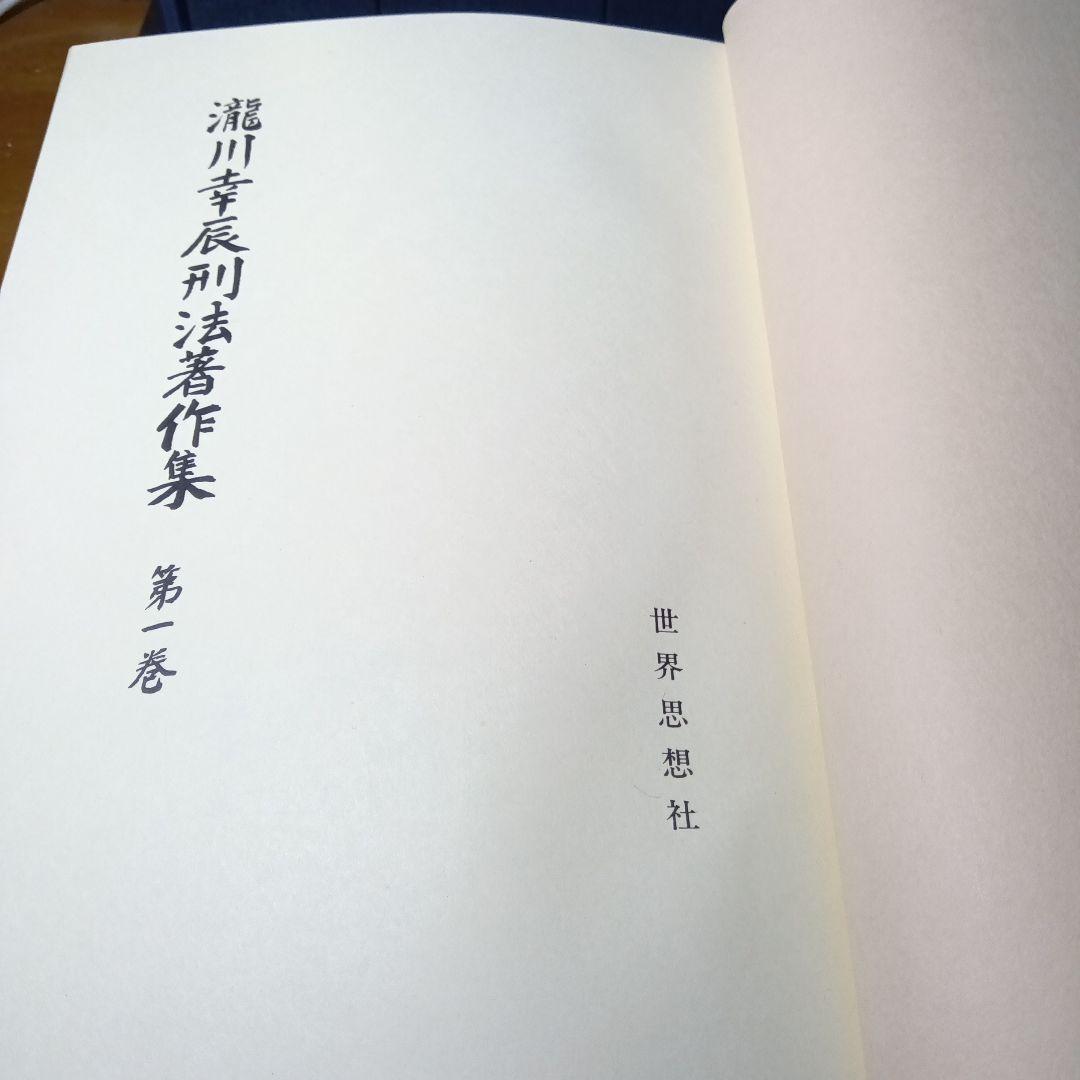 瀧川幸辰刑法著作集 第一巻
世界思想社